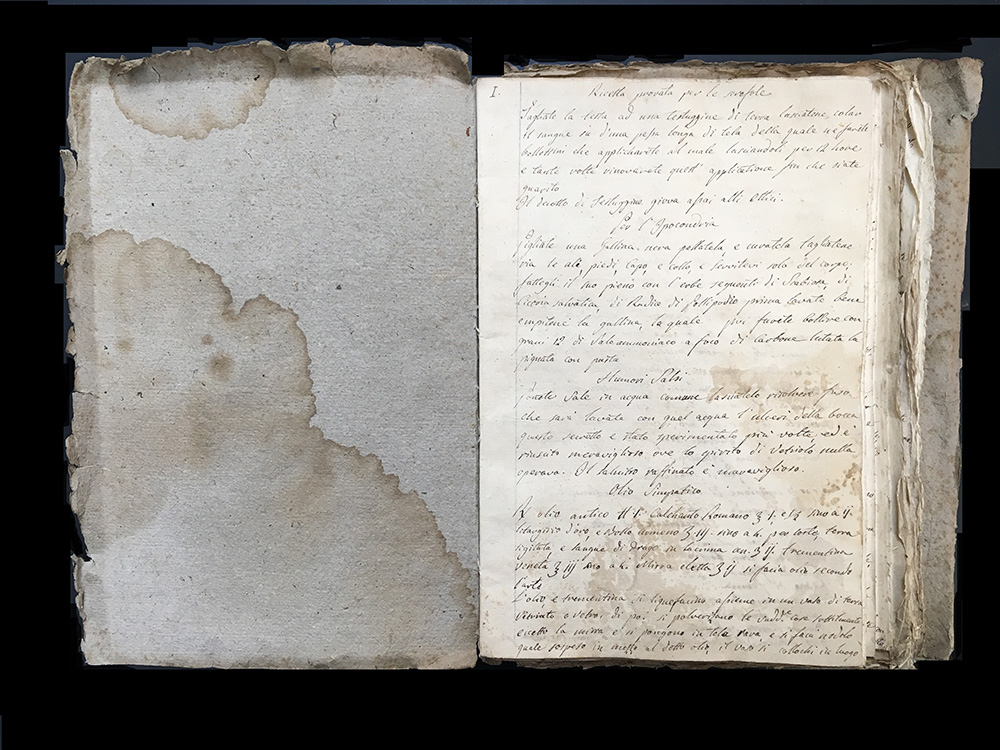 I.
Ricetta provata per le scrofole
Tagliate la testa ad una testuggine di terra lasciatene colar
il sangue su d'una pezza longa di tela della quale ne farete
bollettini che applicharete al male lasciandoli per 12 hore
e tante volte rinovarete quest' applicatione fin che siate
guarito
Il decotto di testuggine giova assai alli Ettici.
Per l'Ipocondria
Pigliate una Gallina nera pellatela, e curatela tagliatene
via le ali, piedi, Capo, e collo, e servitevi solo del corpo;
fattegli il suo pieno con l'erbe seguenti di Scabiosa, di
Cicoria salvatica, di Radica di Pollipodio prima lavate bene
empitene la gallina, la quale poi farete bollire con
grani 12 di Sale ammoniaco a foco di carbone lutata la
pignata con pasta
Humori Salsi
ponete Sale in acqua comune lasciatelo risolvere
che sarà lavata con quel acqua l'ulceri della bocca
questo secretto è stato sperimentato più volte ed è
riuscito meraviglioso ove lo spirito di Vetriolo nulla
operava. Il salnitro raffinato è meraviglioso.
Olio Simpatico
℞ olio antico ℔ 1. Calchanto Romano ℥ j. e ℥ sino a ij.
litargirio d'oro, e Bollo armeno ℥ iij. sino a 4. per sorte, terra
sigillata, e sangue di Drago in lacrima an. ℥ ij. trementina
veneta ℥ iij sino a 4. Mirra eletta ℥ ij si facia olio secondo
l'arte
L'olio, e trementina si liquefacino assieme in un vaso di terra
vitriato o vetro: di poi si polverizano le sudd.e cose sottilmente
eccetto la mirra e si pongono in tela rara e si faci nodolo
quale sospeso in mezzo al detto olio, il vaso si collochi in luogo